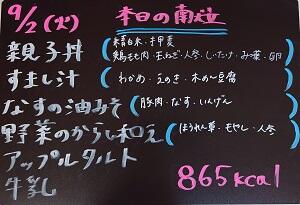 9/2 (火) 本日の献立
親子丼 (精白米・押麦
鶏もも肉・玉ねぎ・人参・しいたけ・みつ葉・卵)
すまし汁 (わかめ・えのき・木めん豆腐)
なすの油みそ (豚肉・なす・いんげん)
野菜のからし和え (ほうれん草・もやし・人参)
アップルタルト
牛乳 865kcal